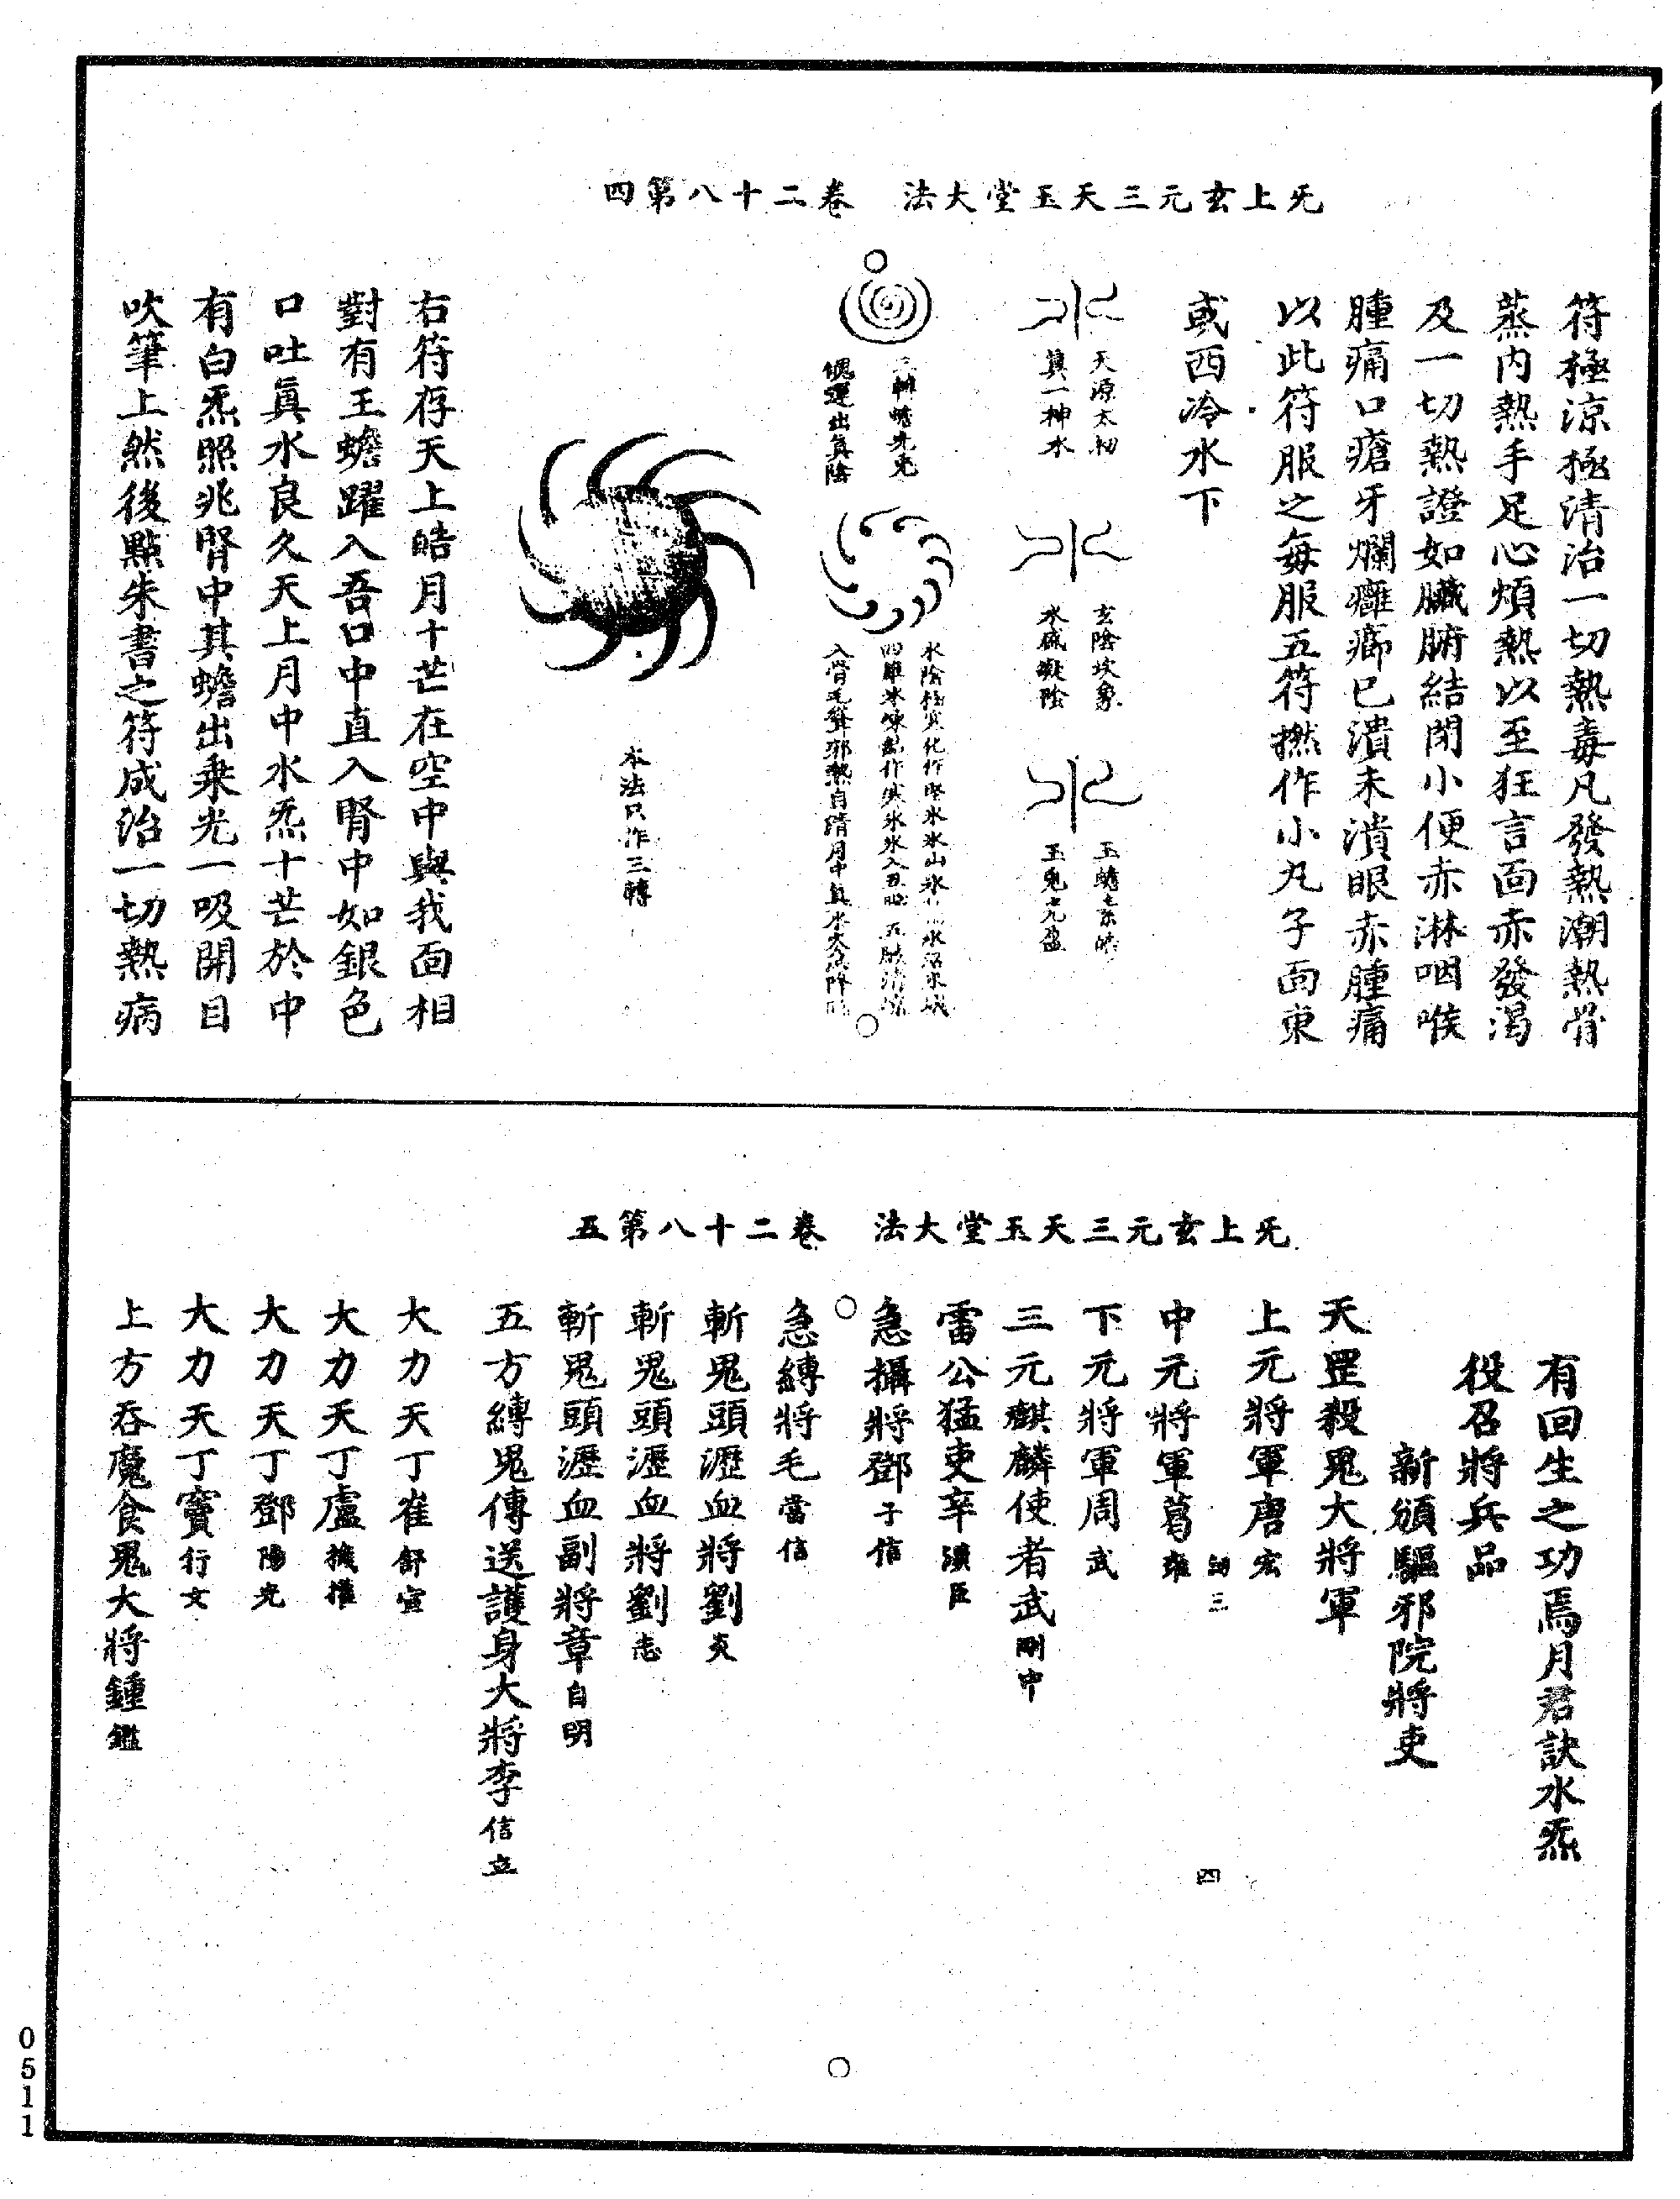 四第八十二卷　法大堂玉天三元玄上旡
符極涼極清治一切熱毒凡發熱潮熱骨
蒸內熱手足心煩熱以至狂言面赤發渴
及一切熱證如臟腑結閉小便赤淋咽喉
腫痛口瘡牙爛癰癤已潰未潰眼赤腫痛
以此符服之每服五符撚作小丸子面東
或西冷水下
天源太初
真一神水
玄陰坎象
水盛凝陰
玉蟾
玉兔光盈
蟾光兔
魄運出真陰
水陰極寒化作堅氷氷山氷
四維氷
入骨毛聳邪熱自清月中真水大
本法只作三轉
右符存天上皓月十芒在空中與我面相
對有王蟾躍入吾口中直入腎中如銀色
口吐眞水良久天上月中水炁十芒於中
有白炁照兆腎中其蟾出乗光一吸開目
吹筆上然後點朱書之符成治一切熱病
五第八十二卷　法大堂玉天三元玄上旡
有回生之功焉月君訣水炁
役召將兵品
新頒驅邪院將吏
天罡殺鬼大將軍
上元將軍唐宏
三
四
中元將軍葛雍
下元將軍周武
三元麒麟使者武剛中
雷公猛吏辛漢臣
急攝將鄧子信
急縛將毛當信
斬鬼頭瀝血將劉炎
斬鬼頭瀝血將劉志
斬鬼頭瀝血副將章自明
五方縛鬼傳送護身大將李信立
大力天丁崔舒宣
大力天丁盧機權
大力天丁鄧陽光
大力天丁竇行文
上方吞魔食鬼大將鍾鑑
0511